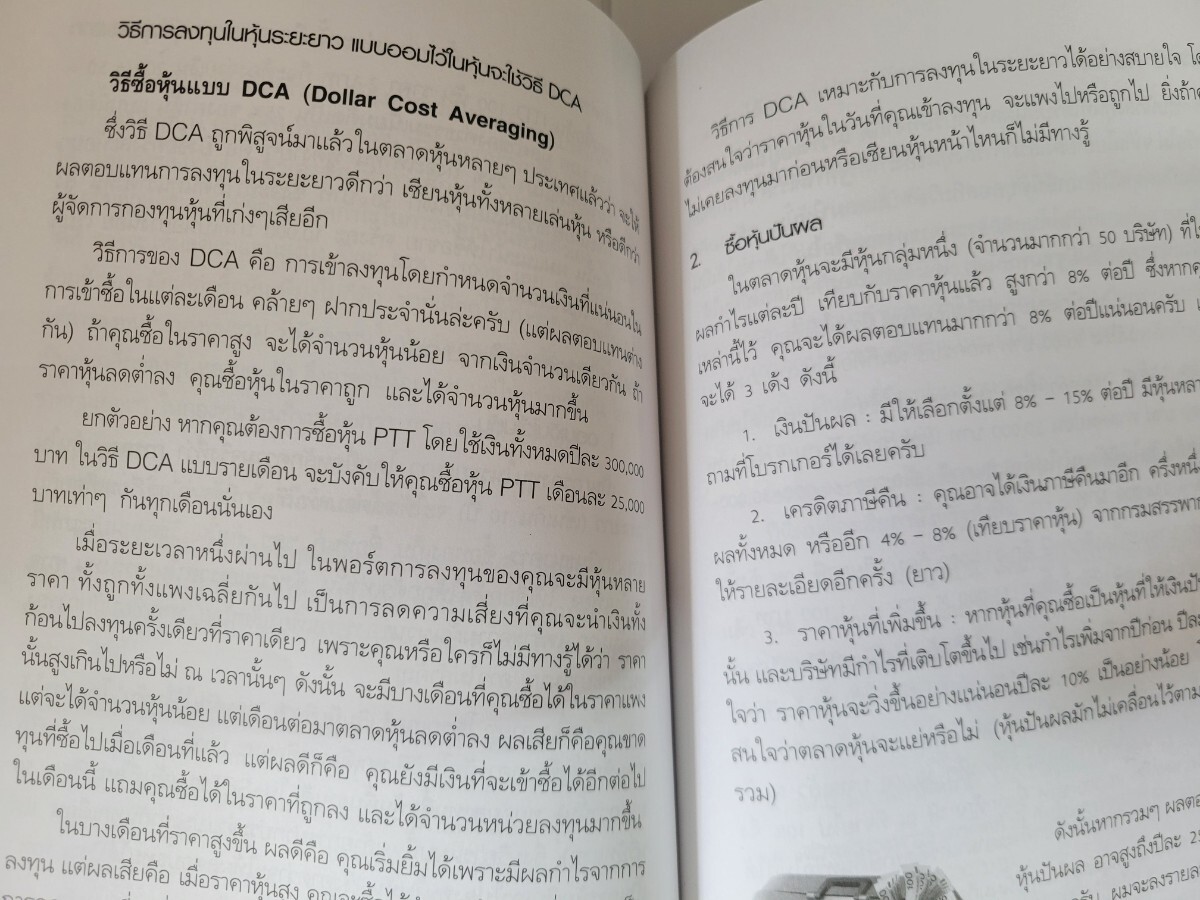 วิธีการลงทุนในหุ้นระยะยาว แบบออมไว้ในหุ้นจะใช้วิธี DCA
วิธีซื้อหุ้นแบบ DCA (Dollar Cost Averaging)
ซึ่งวิธี DCA ถูกพิสูจน์มาแล้วในตลาดหุ้นหลายๆ ประเทศแล้วว่า จะให้
ผลตอบแทนการลงทุนในระยะยาวดีกว่า เซียนหุ้นทั้งหลายเล่นหุ้น หรือดีกว่า
ผู้จัดการกองทุนหุ้นที่เก่งๆเสียอีก
วิธีการของ DCA คือ การเข้าลงทุนโดยกำหนดจำนวนเงินที่แน่นอนใน
การเข้าซื้อในแต่ละเดือน คล้ายๆ ฝากประจำนั่นล่ะครับ (แต่ผลตอบแทนต่าง
กัน) ถ้าคุณซื้อในราคาสูง จะได้จำนวนหุ้นน้อย จากเงินจำนวนเดียวกัน ถ้า
ราคาหุ้นลดต่ำลง คุณซื้อหุ้นในราคาถูก และได้จำนวนหุ้นมากขึ้น
ยกตัวอย่าง หากคุณต้องการซื้อหุ้น PTT โดยใช้เงินทั้งหมดปีละ 300,000
บาท ในวิธี DCA แบบรายเดือน จะบังคับให้คุณซื้อหุ้น PTT เดือนละ 25,000
บาทเท่าๆ กันทุกเดือนนั่นเอง
เมื่อระยะเวลาหนึ่งผ่านไป ในพอร์ตการลงทุนของคุณจะมีหุ้นหลาย
ราคา ทั้งถูกทั้งแพงเฉลี่ยกันไป เป็นการลดความเสี่ยงที่คุณจะนำเงินทั้ง
ก้อนไปลงทุนครั้งเดียวที่ราคาเดียว เพราะคุณหรือใครก็ไม่มีทางรู้ได้ว่า ราคา
นั้นสูงเกินไปหรือไม่ ณ เวลานั้นๆ ดังนั้น จะมีบางเดือนที่คุณซื้อได้ในราคาแพง
แต่จะได้จำนวนหุ้นน้อย แต่เดือนต่อมาตลาดหุ้นลดต่ำลง ผลเสียก็คือคุณขาด
ทุนที่ซื้อไปเมื่อเดือนที่แล้ว แต่ผลดีก็คือ คุณยังมีเงินที่จะเข้าซื้อได้อีกต่อไป
ในเดือนนี้ แถมคุณซื้อได้ในราคาที่ถูกลง และได้จำนวนหน่วยลงทุนมากขึ้น
ในบางเดือนที่ราคาสูงขึ้น ผลดีคือ คุณเริ่มยิ้มได้เพราะมีผลกำไรจากการ
ลงทุน แต่ผลเสียคือ เมื่อราคาหุ้นสูง คุณจะซื้อได้
วิธีการ DCA เหมาะกับการลงทุนในระยะยาวได้อย่างสบายใจ
ต้องสนใจว่าราคาหุ้นในวันที่คุณเข้าลงทุน จะแพงไปหรือถูกไป ยิ่งถ้า
ไม่เคยลงทุนมาก่อนหรือเซียนหุ้นหน้าไหนก็ไม่มีทางรู้
2. ซื้อหุ้นปันผล
ในตลาดหุ้นจะมีหุ้นกลุ่มหนึ่ง (จำนวนมากกว่า 50 บริษัท)
ผลกำไรแต่ละปี เทียบกับราคาหุ้นแล้ว สูงกว่า 8% ต่อปี ซึ่งหาก
เหล่านี้ไว้ คุณจะได้ผลตอบแทนมากกว่า 8% ต่อปีแน่นอนครับ
จะได้ 3 เด้ง ดังนี้
1. เงินปันผล : มีให้เลือกตั้งแต่ 8% – 15% ต่อปี
ถามที่โบรกเกอร์ได้เลยครับ
2. เครดิตภาษีคืน : คุณอาจได้เงินภาษีคืนมาอีก
ผลทั้งหมด หรืออีก 4% – 8% (เทียบราคาหุ้น)
ให้รายละเอียดอีกครั้ง (ยาว)
3. ราคาหุ้นที่เพิ่มขึ้น : หากหุ้นที่คุณซื้อเป็นหุ้นที่ให้เงิน
นั้น และบริษัทมีกำไรที่เติบโตขึ้นไป เช่นกำไรเพิ่มจากปีก่อน
ใจว่า ราคาหุ้นจะวิ่งขึ้นอย่างแน่นอนปีละ 10% เป็นอย่างน้อย
สนใจว่าตลาดหุ้นจะแย่หรือไม่ (หุ้นปันผลมักไม่เคลื่อนไว้ตาม
รวม)
ดังนั้นหากรวมๆ
หุ้นปันผล อาจสูงถึงปีละ